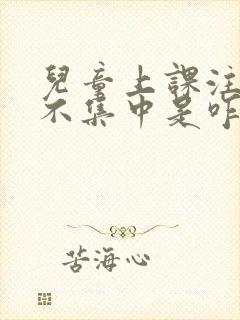 兒童上課注
不集中是咋
苦海心